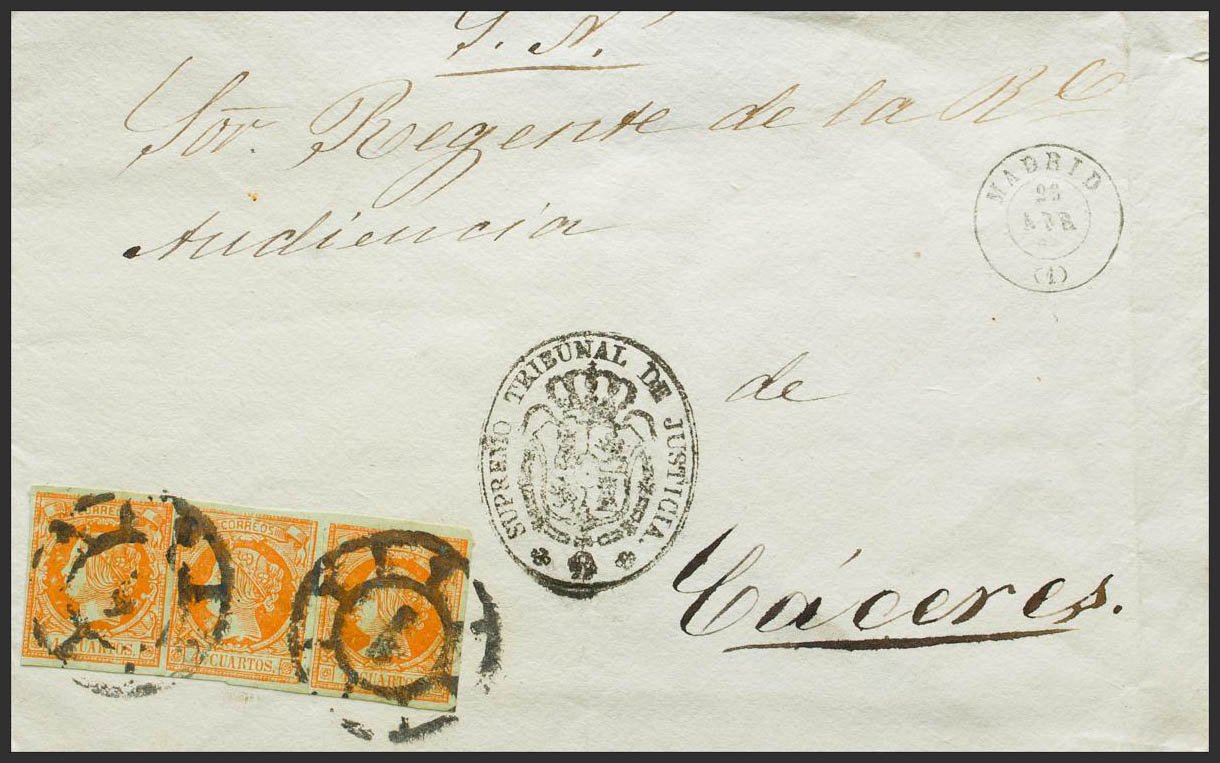 S. N.
Sor. Regente de la Rl
Audiencia
MADRID
23
ABR
(1)
SUPREMO TRIBUNAL DE JUSTICIA.
de
Cáceres.
CORREOS
CUARTOS.
CORREOS
CUARTOS.
CUARTOS